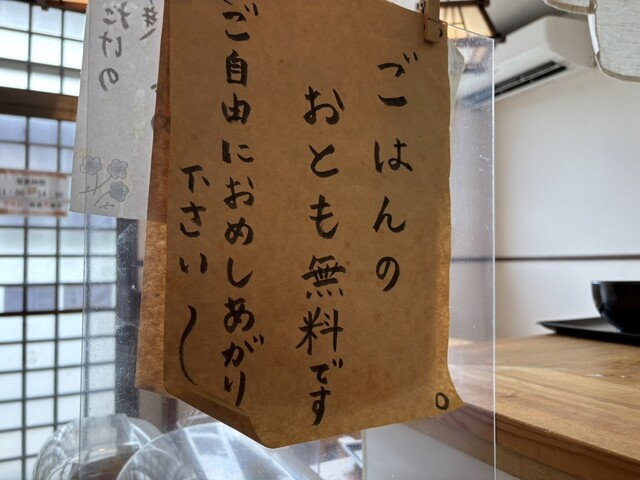 ごはんの
おとも無料です。
ご自由におめしあがり
下さい
だけの